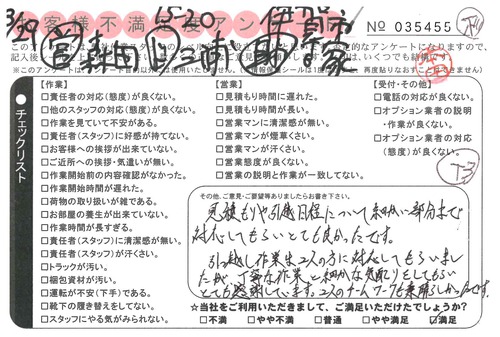 お客様不満足度アンケート
3/29 営 森田 15-20 三崎 伊賀市
№ 035455
チェックリスト
【作業】
□責任者の対応(態度)が良くない。
□他のスタッフの対応(態度)が良くない。
□作業を見ていて不安がある。
□責任者(スタッフ)に好感が持てない。
□お客様への挨拶が出来ていない。
□ご近所への挨拶・気遣いが無い。
□作業開始前の内容確認がなかった。
□作業開始時間が遅れた。
□荷物の取り扱いが雑である。
□お部屋の養生が出来ていない。
□作業時間が長すぎる。
□責任者(スタッフ)に清潔感が無い。
□責任者(スタッフ)が汗くさい。
□トラックが汚い。
□梱包資材が汚い。
□運転が不安(下手)である。
□靴下の履き替えをしてない。
□スタッフにやる気がみられない。
【営業】
□見積もり時間に遅れた。
□見積もり時間が長い。
□営業マンに清潔感が無い。
□営業マンが煙草くさい。
□営業マンが汗くさい。
□営業態度が良くない。
□営業の説明と作業が一致してない。
【受付・その他】
□電話の対応が良くない。
□オプション業者の説明・作業が良くない。
□オプション業者の対応(態度)が良くない。
T-3
その他、ご意見・ご要望等ありましたらお書き下さい。
見積もりや引越日程について細かい部分まで
対応してもらいとても良かったです。
引っ越し作業も2人の方に対応してもらいまし
たが、丁寧な作業と細かな気配りをしてもらい
とても感謝しています。2人のチームワークも素晴らしかったです。
☆当社をご利用いただきまして、ご満足いただけたでしょうか?
□不満 □やや不満 □普通 □やや満足 ☑満足